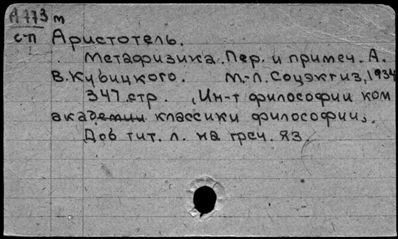 А 773 м
с-п Аристотель.
Метафизика. Пер. и примеч. А.
В. Кубицкого. М.-Л. Соцэкгиз, 1934
347 стр. (Ин-т философии ком
академии классики философии).
Доб тит. л. на греч. яз.